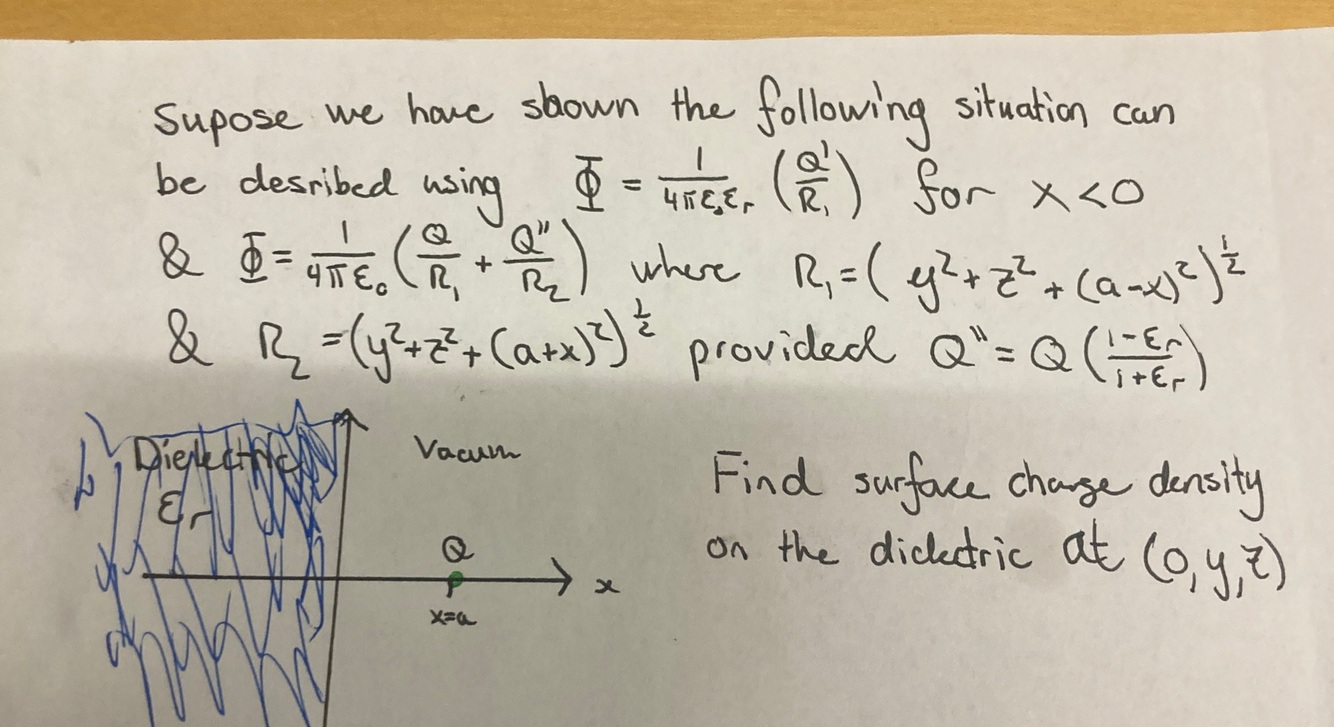 Supose we have shown the following situation can
be desribed using Φ = 1/(4πε₀εᵣ) (Q'/R₁) for x<0
& Φ = 1/(4πε₀) (Q/R₁ + Q''/R₂) where R₁ = (y²+z²+(a-x)²)^½
& R₂ = (y²+z²+(a+x)²)^½ provided Q'' = Q((1-εᵣ)/(1+εᵣ))
Dielectric
εᵣ
Vacum
Q
x
x=a
Find surface charge density
on the dielectric at (0,y,z)